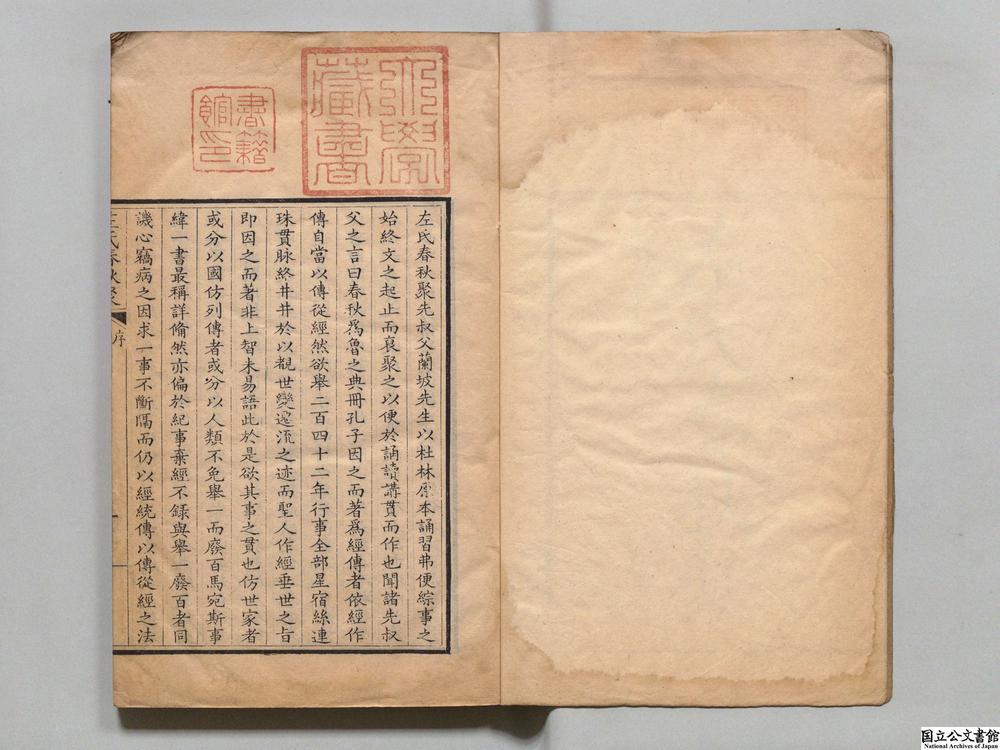 左氏春秋聚先叔父蘭坡先生以杜林原本誦習弗便綜事之
始終文之起止而裒聚之以便於誦讀講貫而作也聞諸先叔
父之言曰春秋爲魯之典冊孔子因之而著爲經傳者依經作
傳自當以傳從經然欲舉二百四十二年行事全部星宿絲連
珠貫脉終井井於以觀世變遷流之迹而聖人作經垂世之旨
即因之而著非上智未易語此於是欲其事之貫也仿世家者
或分以國仿列傳者或分以人類不免舉一而廢百馬宛斯事
緯一書最稱詳脩然亦偏於紀事棄經不錄與舉一廢百者同
譏心竊病之因求一事不斷隔而仍以經統傳以傳從經之法
左氏春秋聚
序
一
藏書
書籍
館印
国立公文書館
National Archives of Japan